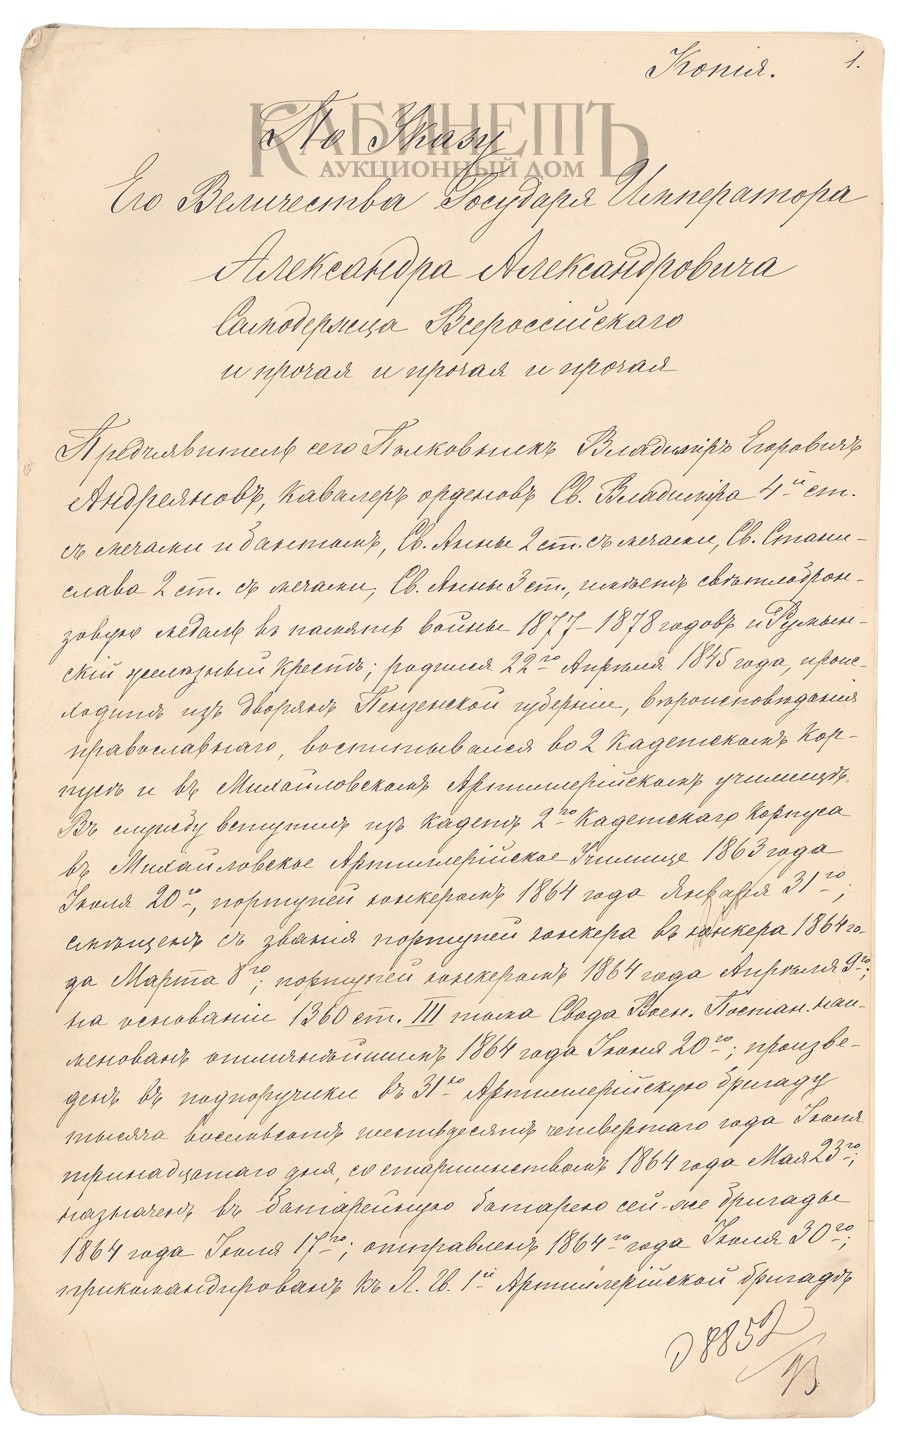 Копія.
1.
КАБИНЕТЪ
АУКЦИОННЫЙ ДОМ
По Указу
Его Величества Государя Императора
Александра Александровича
Самодержца Всероссійскаго
и прочая и прочая и прочая
Предъявитель сего Полковникъ Владиміръ Егоровичъ
Андреяновъ, кавалеръ орденовъ Св. Владиміра 4й ст.
съ мечами и бантомъ, Св. Анны 2 ст. съ мечами, Св. Стани-
слава 2 ст. съ мечами, Св. Анны 3 ст., имѣетъ свѣтлоброн-
зовую медаль въ память войны 1877–1878 годовъ и Румын-
скій желѣзный крестъ; родился 22го Апрѣля 1845 года, проис-
ходитъ изъ дворянъ Пензенской губерніи, вѣроисповѣданія
православнаго, воспитывался во 2 Кадетскомъ Кор-
пусѣ и въ Михайловскомъ Артиллерійскомъ училищѣ.
Въ службу вступилъ изъ кадетъ 2го Кадетскаго Корпуса
въ Михайловское Артиллерійское Училище 1863 года
Іюля 20го, портупей юнкеромъ 1864 года Января 31го;
смѣщенъ съ званія портупей юнкера въ юнкера 1864 го-
да Марта 8го; портупей юнкеромъ 1864 года Апрѣля 9го;
на основаніи 1360 ст. III тома Свода Воен. Постан. наи-
менованъ отличнѣйшимъ 1864 года Іюня 20го; произве-
денъ въ подпоручики въ 31ю Артиллерійскую бригаду
тысяча восемьсотъ шестьдесятъ четвертаго года Іюня
тринадцатаго дня, со старшинствомъ 1864 года Мая 23го;
назначенъ въ батарейную батарею сей-же бригады
1864 года Іюля 17го; отправленъ 1864го года Іюля 30го;
прикомандированъ къ Л. Гв. 1й Артиллерійской бригадѣ
8852
93